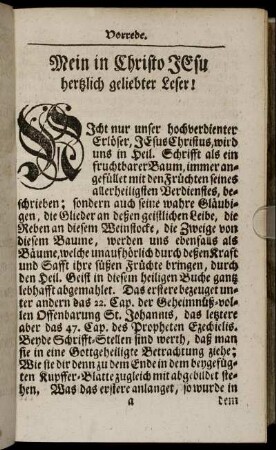 Vorrede.
Mein in Christo JEsu
hertzlich geliebter Leser!
NIcht nur unser hochverdienter
Erlöser, JEsus Christus, wird
uns in Heil. Schrifft als ein
fruchtbarer Baum, immer an-
gefüllet mit den Früchten seines
allerheiligsten Verdienstes, be-
schrieben; sondern auch seine wahre Gläubi-
gen, die Glieder an deßen geistlichen Leibe, die
Reben an diesem Weinstocke, die Zweige von
diesem Baume, werden uns ebenfals als
Bäume, welche unaufhörlich durch deßen Kraft
und Safft ihre süßen Früchte bringen, durch
den Heil. Geist in diesem heiligen Buche gantz
lebhafft abgemahlet. Das erstere bezeuget un-
ter andern das 22. Cap. der Geheimnüß-vol-
len Offenbarung St. Johannis, das letztere
aber das 47. Cap. des Propheten Ezechielis.
Beyde Schrifft-Stellen sind werth, daß man
sie in eine Gottgeheiligte Betrachtung ziehe;
Wie sie dir denn zu dem Ende in dem beygefüg-
ten Kupffer-Blatte zugleich mit abgebildet ste-
hen. Was das erstere anlanget, so wurde in
a dem